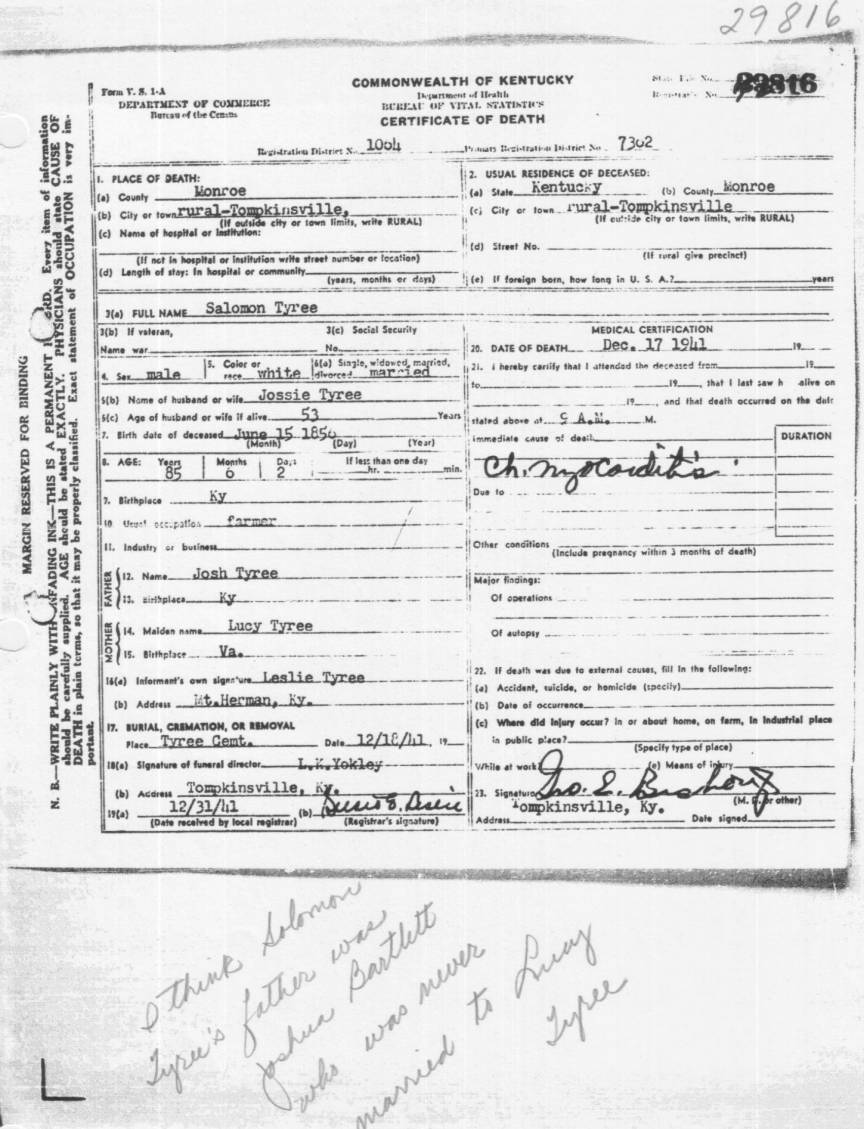 29816
Form V. S. 1-A
DEPARTMENT OF COMMERCE
Bureau of the Census
COMMONWEALTH OF KENTUCKY
Department of Health
BUREAU OF VITAL STATISTICS
CERTIFICATE OF DEATH
State File No. 29816
Registrar's No.
Registration District No. 1064 Primary Registration District No. 7302
MARGIN RESERVED FOR BINDING
N. B.—WRITE PLAINLY WITH UNFADING INK—THIS IS A PERMANENT RECORD. Every item of information
should be carefully supplied. AGE should be stated EXACTLY. PHYSICIANS should state CAUSE OF
DEATH in plain terms, so that it may be properly classified. Exact statement of OCCUPATION is very im-
portant.
1. PLACE OF DEATH:
(a) County Monroe
(b) City or town rural-Tompkinsville,
(If outside city or town limits, write RURAL)
(c) Name of hospital or institution:
(If not in hospital or institution write street number or location)
(d) Length of stay: In hospital or community
(years, months or days)
2. USUAL RESIDENCE OF DECEASED:
(a) State Kentucky (b) County Monroe
(c) City or town rural-Tompkinsville
(If outside city or town limits, write RURAL)
(d) Street No.
(If rural give precinct)
(e) If foreign born, how long in U. S. A.? years
3(a) FULL NAME Salomon Tyree
3(b) If veteran, 3(c) Social Security
Name war No.
4. Sex male 5. Color or race white 6(a) Single, widowed, married, divorced married
6(b) Name of husband or wife Jossie Tyree
6(c) Age of husband or wife if alive 53 Years
7. Birth date of deceased June 15 1856
(Month) (Day) (Year)
8. AGE: Years Months Days If less than one day
85 6 2 hr. min.
9. Birthplace Ky
10. Usual occupation farmer
11. Industry or business
FATHER
12. Name Josh Tyree
13. Birthplace Ky
MOTHER
14. Maiden name Lucy Tyree
15. Birthplace Va.
16(a) Informent's own signature Leslie Tyree
(b) Address Mt.Herman, Ky.
17. BURIAL, CREMATION, OR REMOVAL
Place Tyree Cemt. Date 12/18/41, 19
18(a) Signature of funeral director L.K.Yokley
(b) Address Tompkinsville, Ky.
19(a) 12/31/41 (b)
(Date received by local registrar) (Registrar's signature)
MEDICAL CERTIFICATION
20. DATE OF DEATH Dec. 17 1941 19
21. I hereby certify that I attended the deceased from 19
to 19, that I last saw h alive on
19, and that death occurred on the date
stated above at A.M. M.
Immediate cause of death DURATION
Ch. Myocarditis
Due to
Other conditions
(Include pregnancy within 3 months of death)
Major findings:
Of operations
Of autopsy
22. If death was due to external causes, fill in the following:
(a) Accident, suicide, or homicide (specify)
(b) Date of occurrence
(c) Where did injury occur? In or about home, on farm, in industrial place
in public place?
(Specify type of place)
While at work? (e) Means of injury
23. Signature Geo. E. Bushong
(M. D. or other)
Address Tompkinsville, Ky. Date signed
I think Solomon
Tyree's father was
Joshua Bartlett
who was never
married to Lucy
Tyree